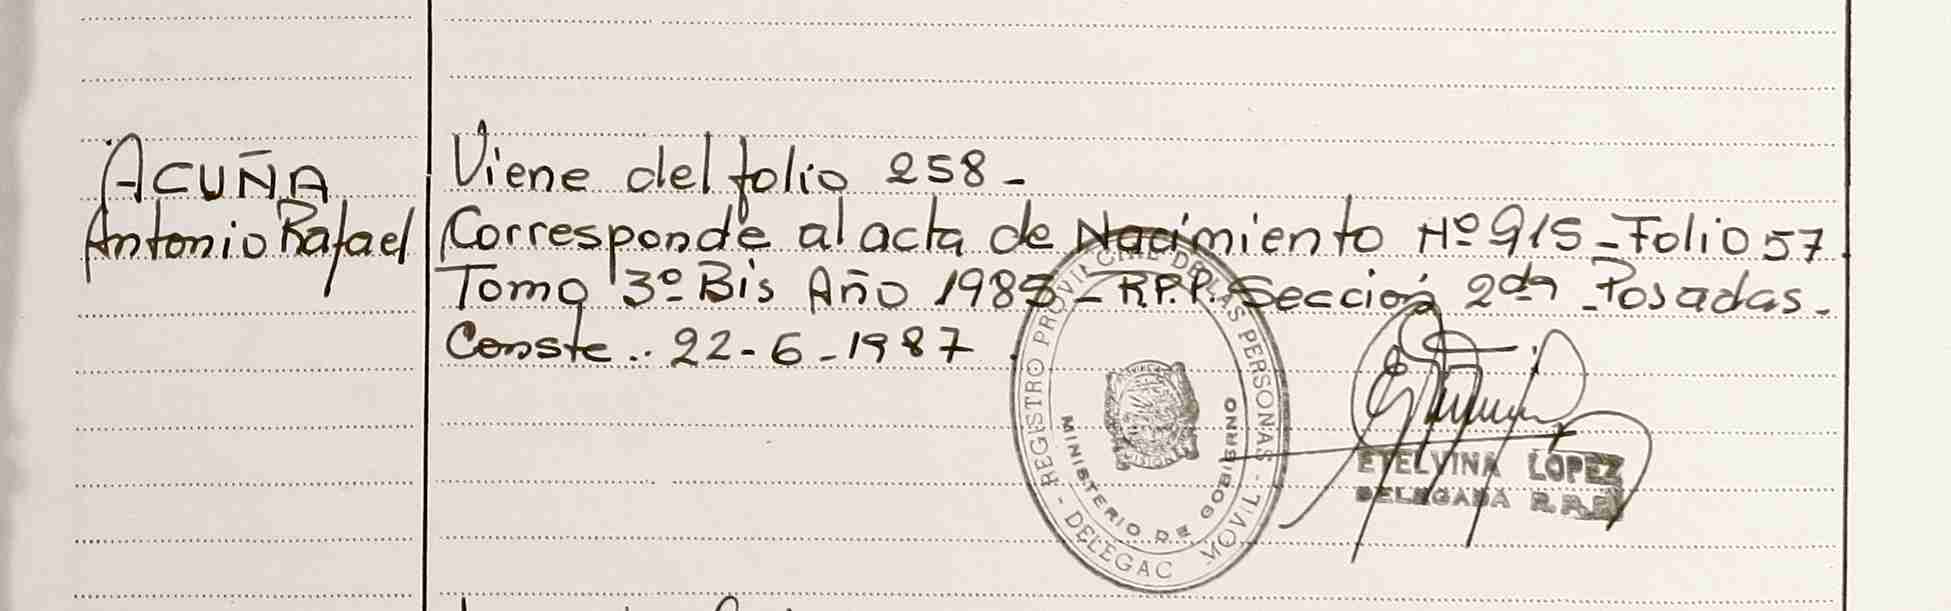 ACUÑA
Antonio Rafael
Viene del folio 258-
Corresponde al acta de Nacimiento Nº 915-Folio 57
Tomo 3º Bis Año 1985-R.P.P. Sección 2da Posadas-
Conste.. 22-6-1987
REGISTRO PROVINCIAL DE LAS PERSONAS - MOVIL - DELEGAC
MINISTERIO DE GOBIERNO
ETELVINA LOPEZ
DELEGADA R.P.P.